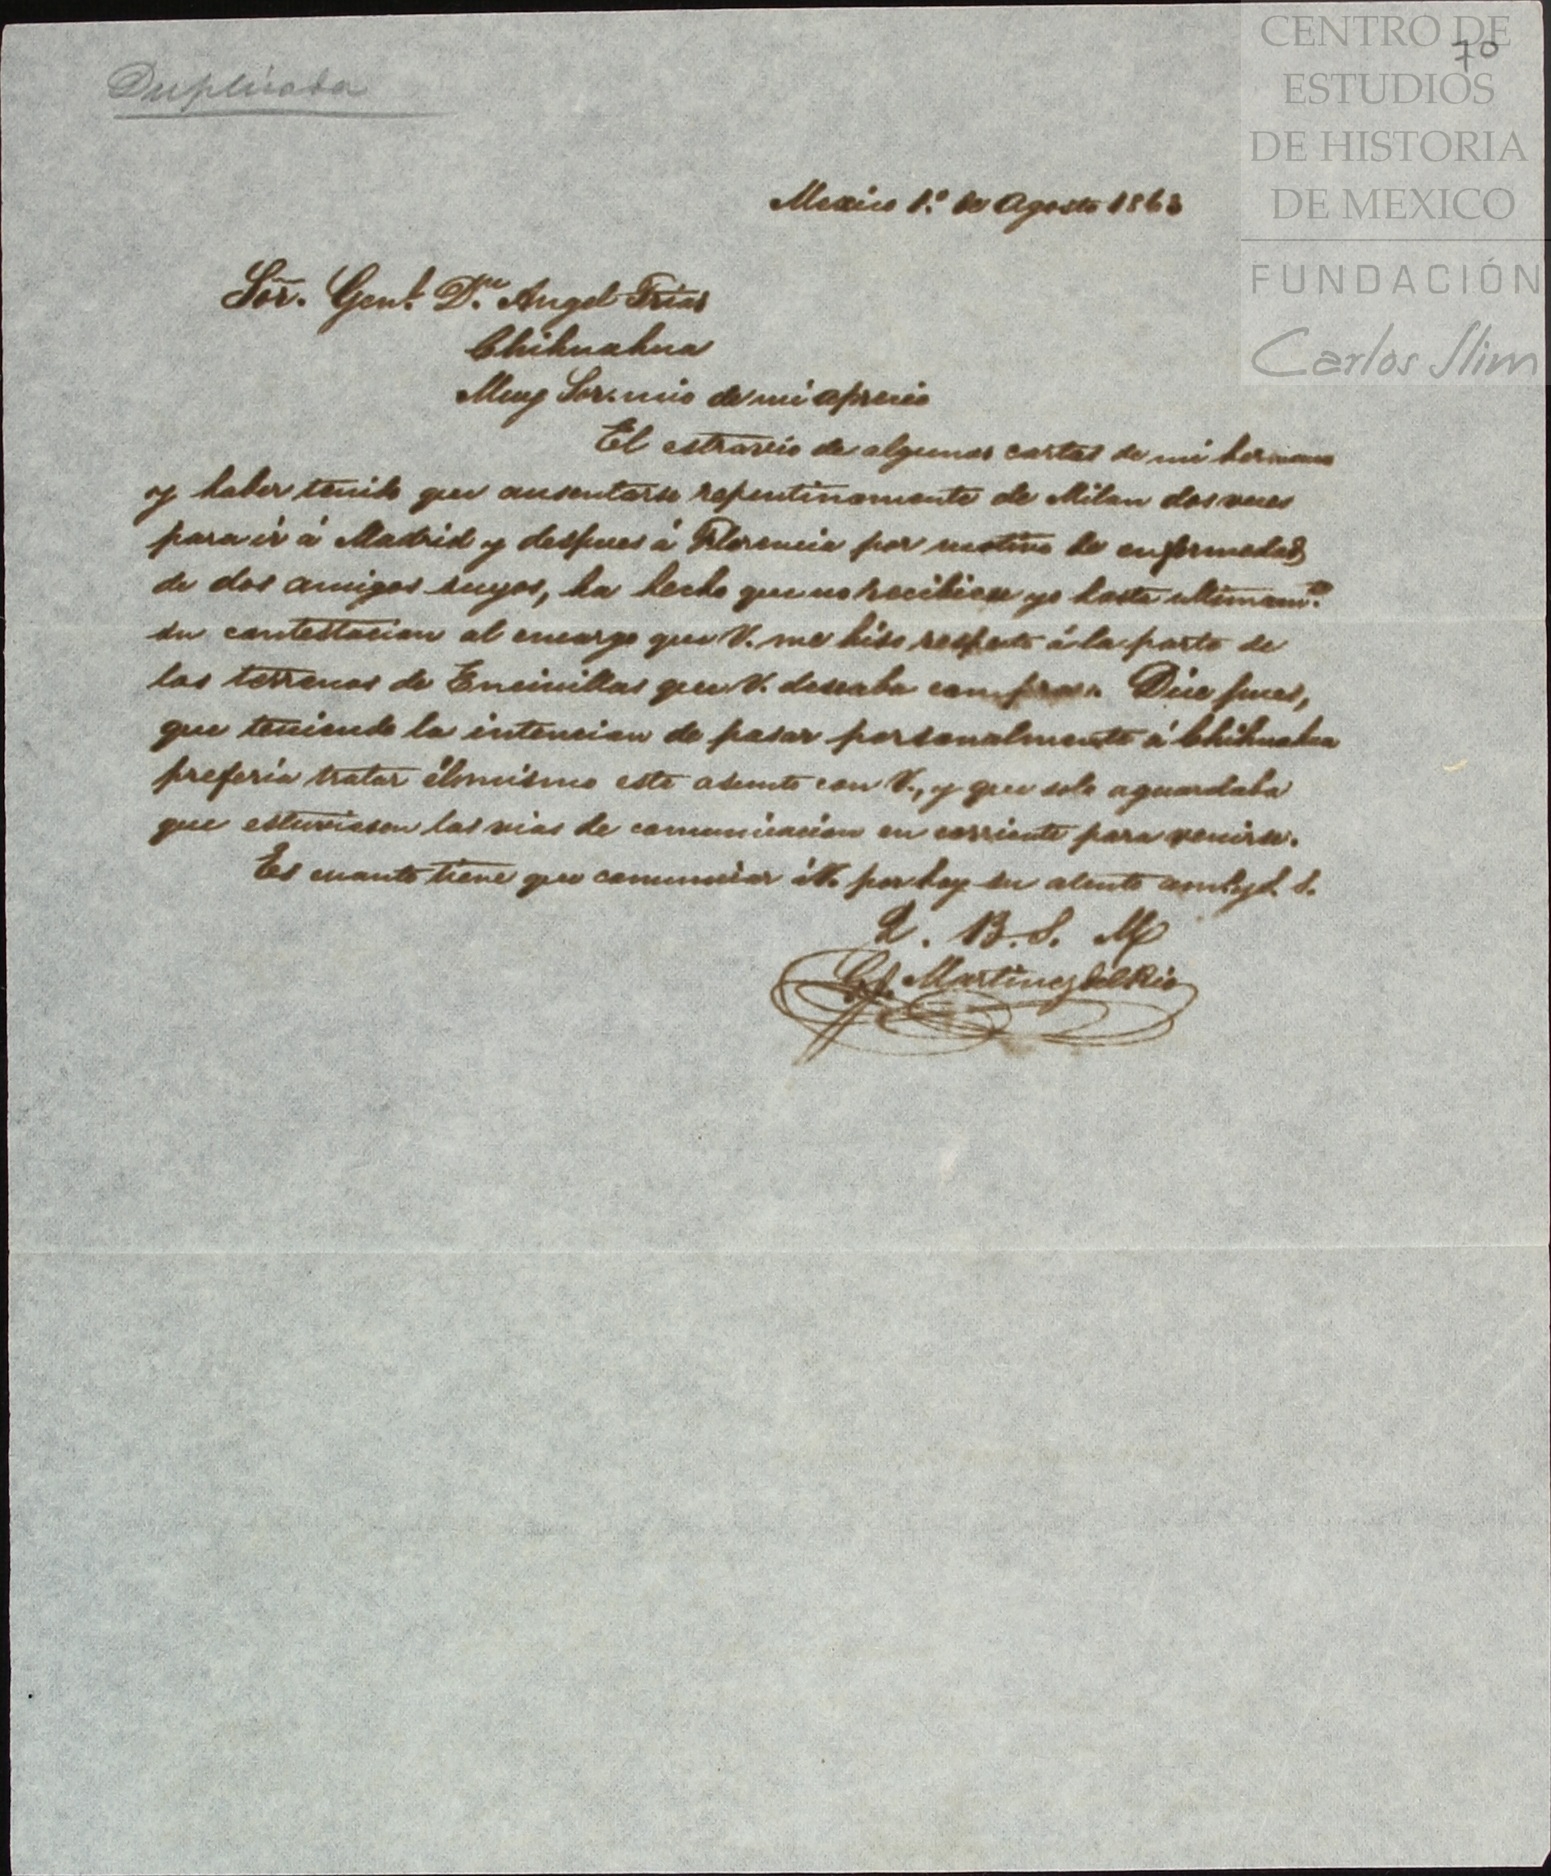 CENTRO DE
ESTUDIOS
DE HISTORIA
DE MEXICO
FUNDACIÓN
Carlos Slim
70
Duplicada
Mexico 1.º de Agosto 1863
Sõr. Gen.l D.n Angel Trias
Chihuahua
Muy Sor. mio de mi aprecio
El estravio de algunas cartas de mi hermano
y haber tenido que ausentarse repentinamente de Milan dos veces
para ir á Madrid y despues á Florencia por motivo de enfermedad
de dos amigos suyos, ha hecho que no recibiese yo hasta ultimam.te
su contestacion al encargo que V. me hiso respecto á la parte de
los terrenos de Encinillas que V. deseaba comprar. Dice pues,
que teniendo la intencion de pasar personalmente á Chihuahua
preferia tratar él mismo este asunto con V., y que solo aguardaba
que estuviesen las vias de comunicacion en corriente para venirse.
Es cuanto tiene que comunicar á V. por hoy su atento am.o y S. S.
Q. B. S. M
Martinez del Rio